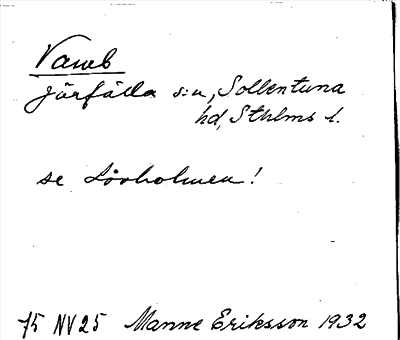 Järfälla s:n, Sollentuna
hd, Sthlms l.
se Lövholmen!
75 NV25 Manne Eriksson 1932